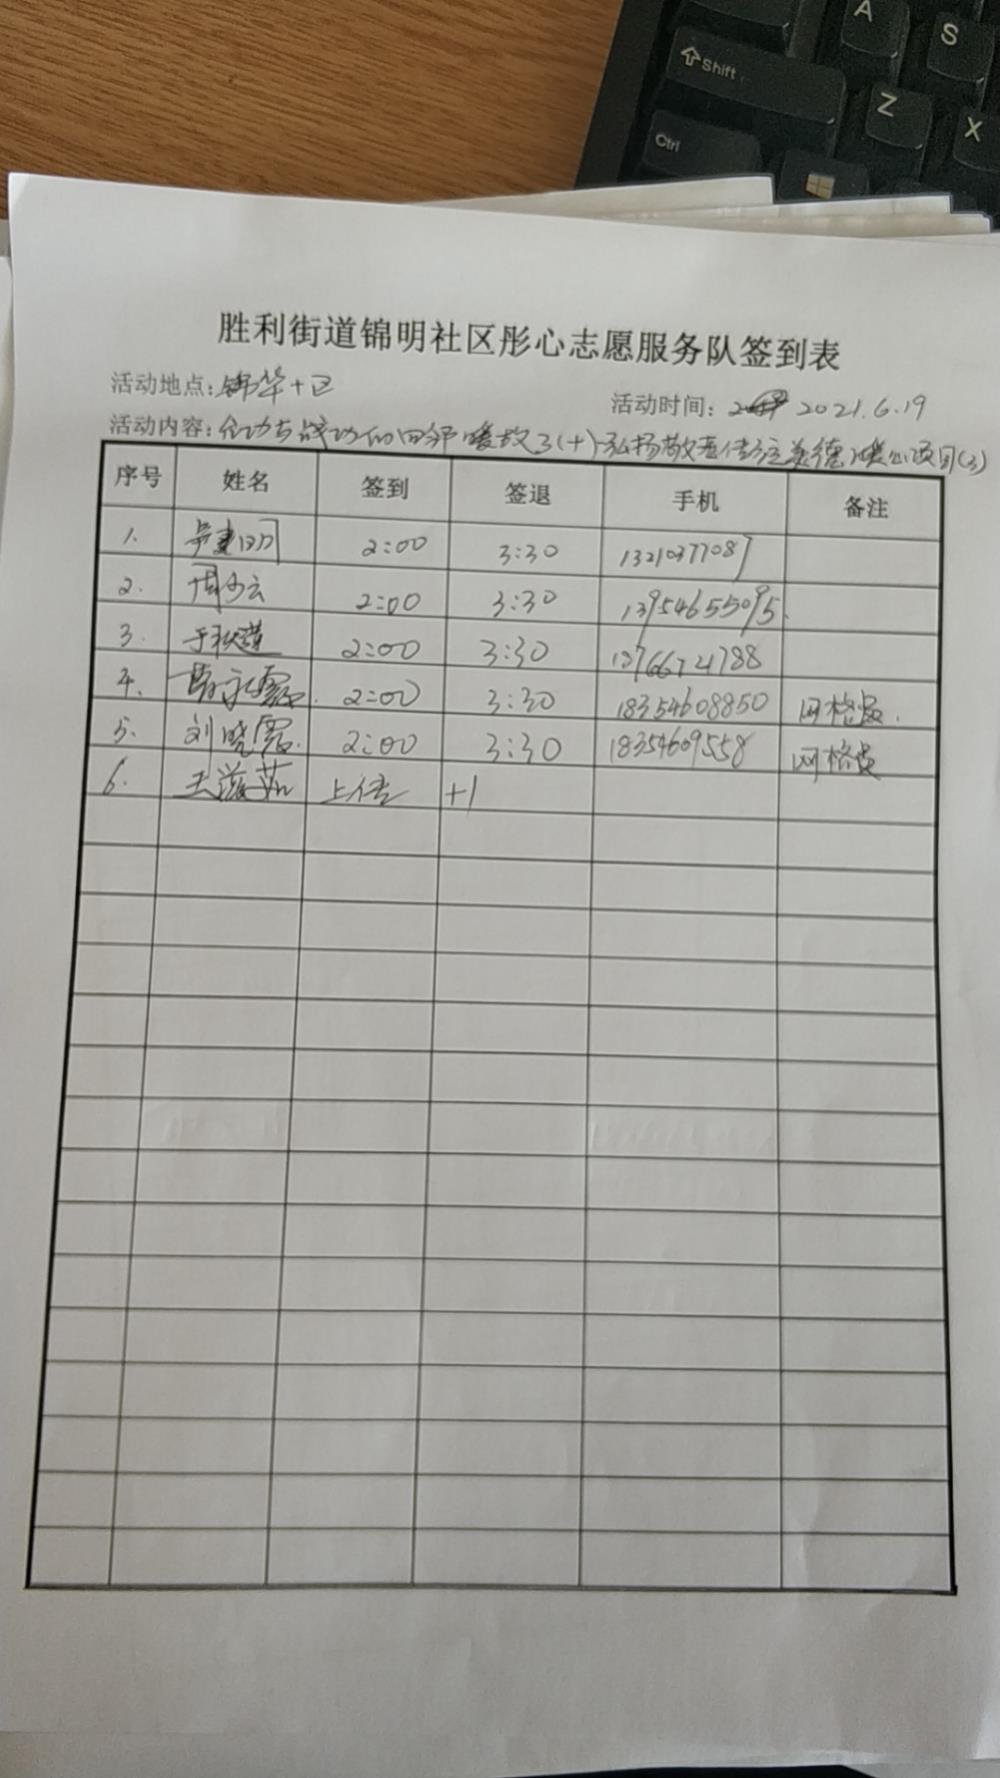 A
S
Shift
Z
X
Ctrl
胜利街道锦明社区彤心志愿服务队签到表
活动地点：锦华十区
活动时间： 2021.6.19
活动内容： 弘扬敬老传统美德 暖心项目(3)
序号 姓名 签到 签退 手机 备注
1. 2:00 3:30 13210377087
2. 周少云 2:00 3:30 13954655095
3. 于秋莲 2:00 3:30 13766724788
4. 2:00 3:30 18354608850 网格员.
5. 刘晓霞. 2:00 3:30 18354609558 网格员
6. 王滋茹 上传 +1